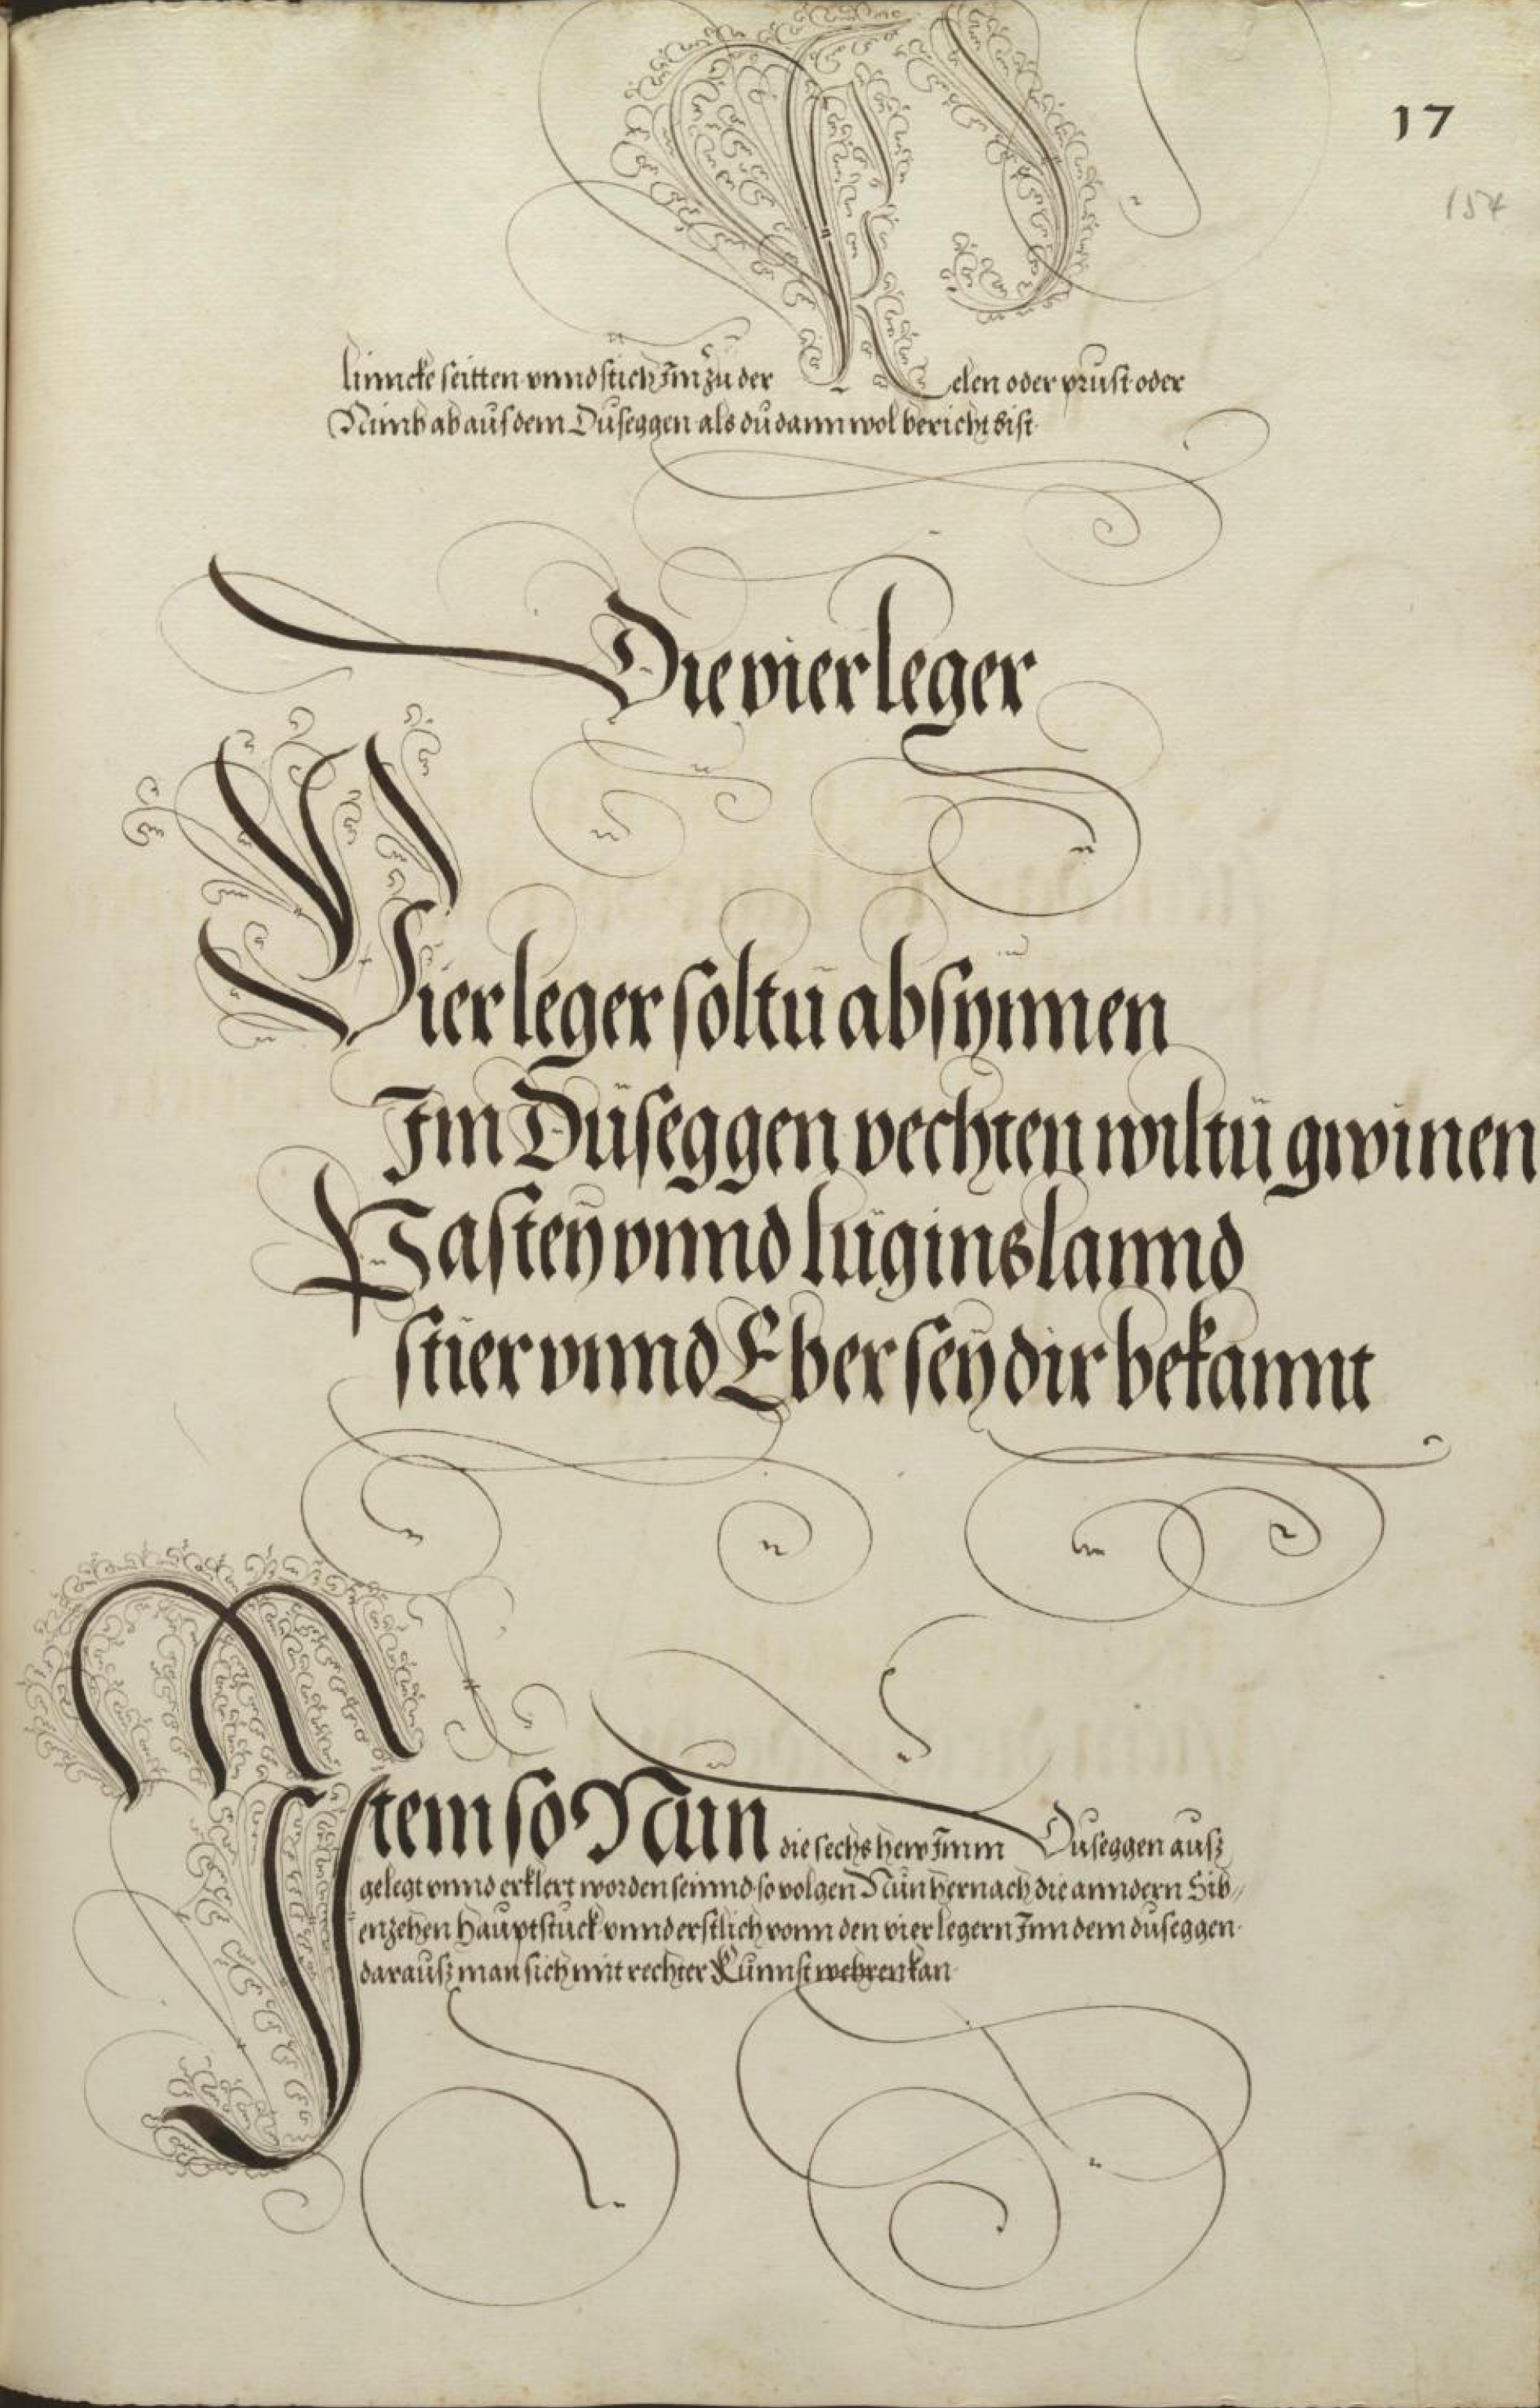 17
154
linncke seitten vnnd stich Im zu der Kelen oder prust oder
Nimb ab aus dem Duseggen als du dann wol bericht bist
Die vier leger
Vier leger soltu absynnen
Im Duseggen vechten wiltu gwinen
Pastey vnnd luginslannd
stier vnnd Eber sey dir bekannt
Item so Nun die sechs hew Imm Duseggen ausz
gelegt vnnd erklert worden seinnd so volgen Nun hernach die anndern Sib//
enzehen Hauptstuck vnnd erstlich vonn den vier legern Inn dem duseggen
darausz man sich mit rechter Kunnst wehren kan